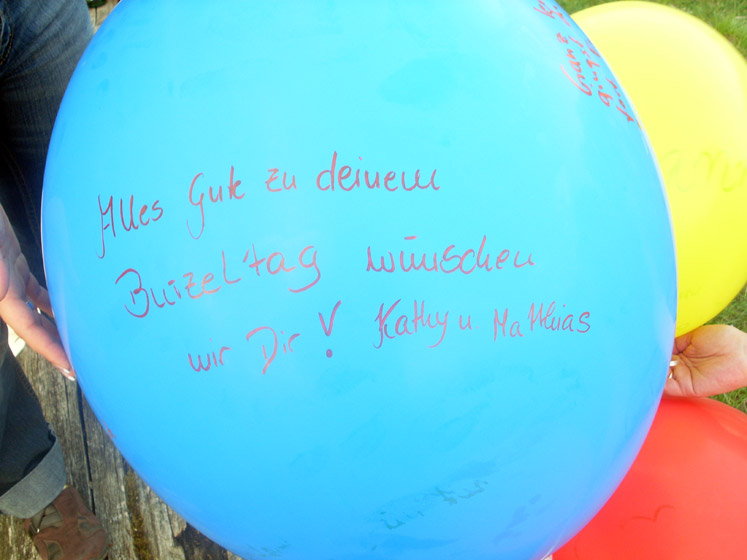 Alles Gute zu deinem
Burzeltag wünschen
wir Dir! Kathy u. Matthias